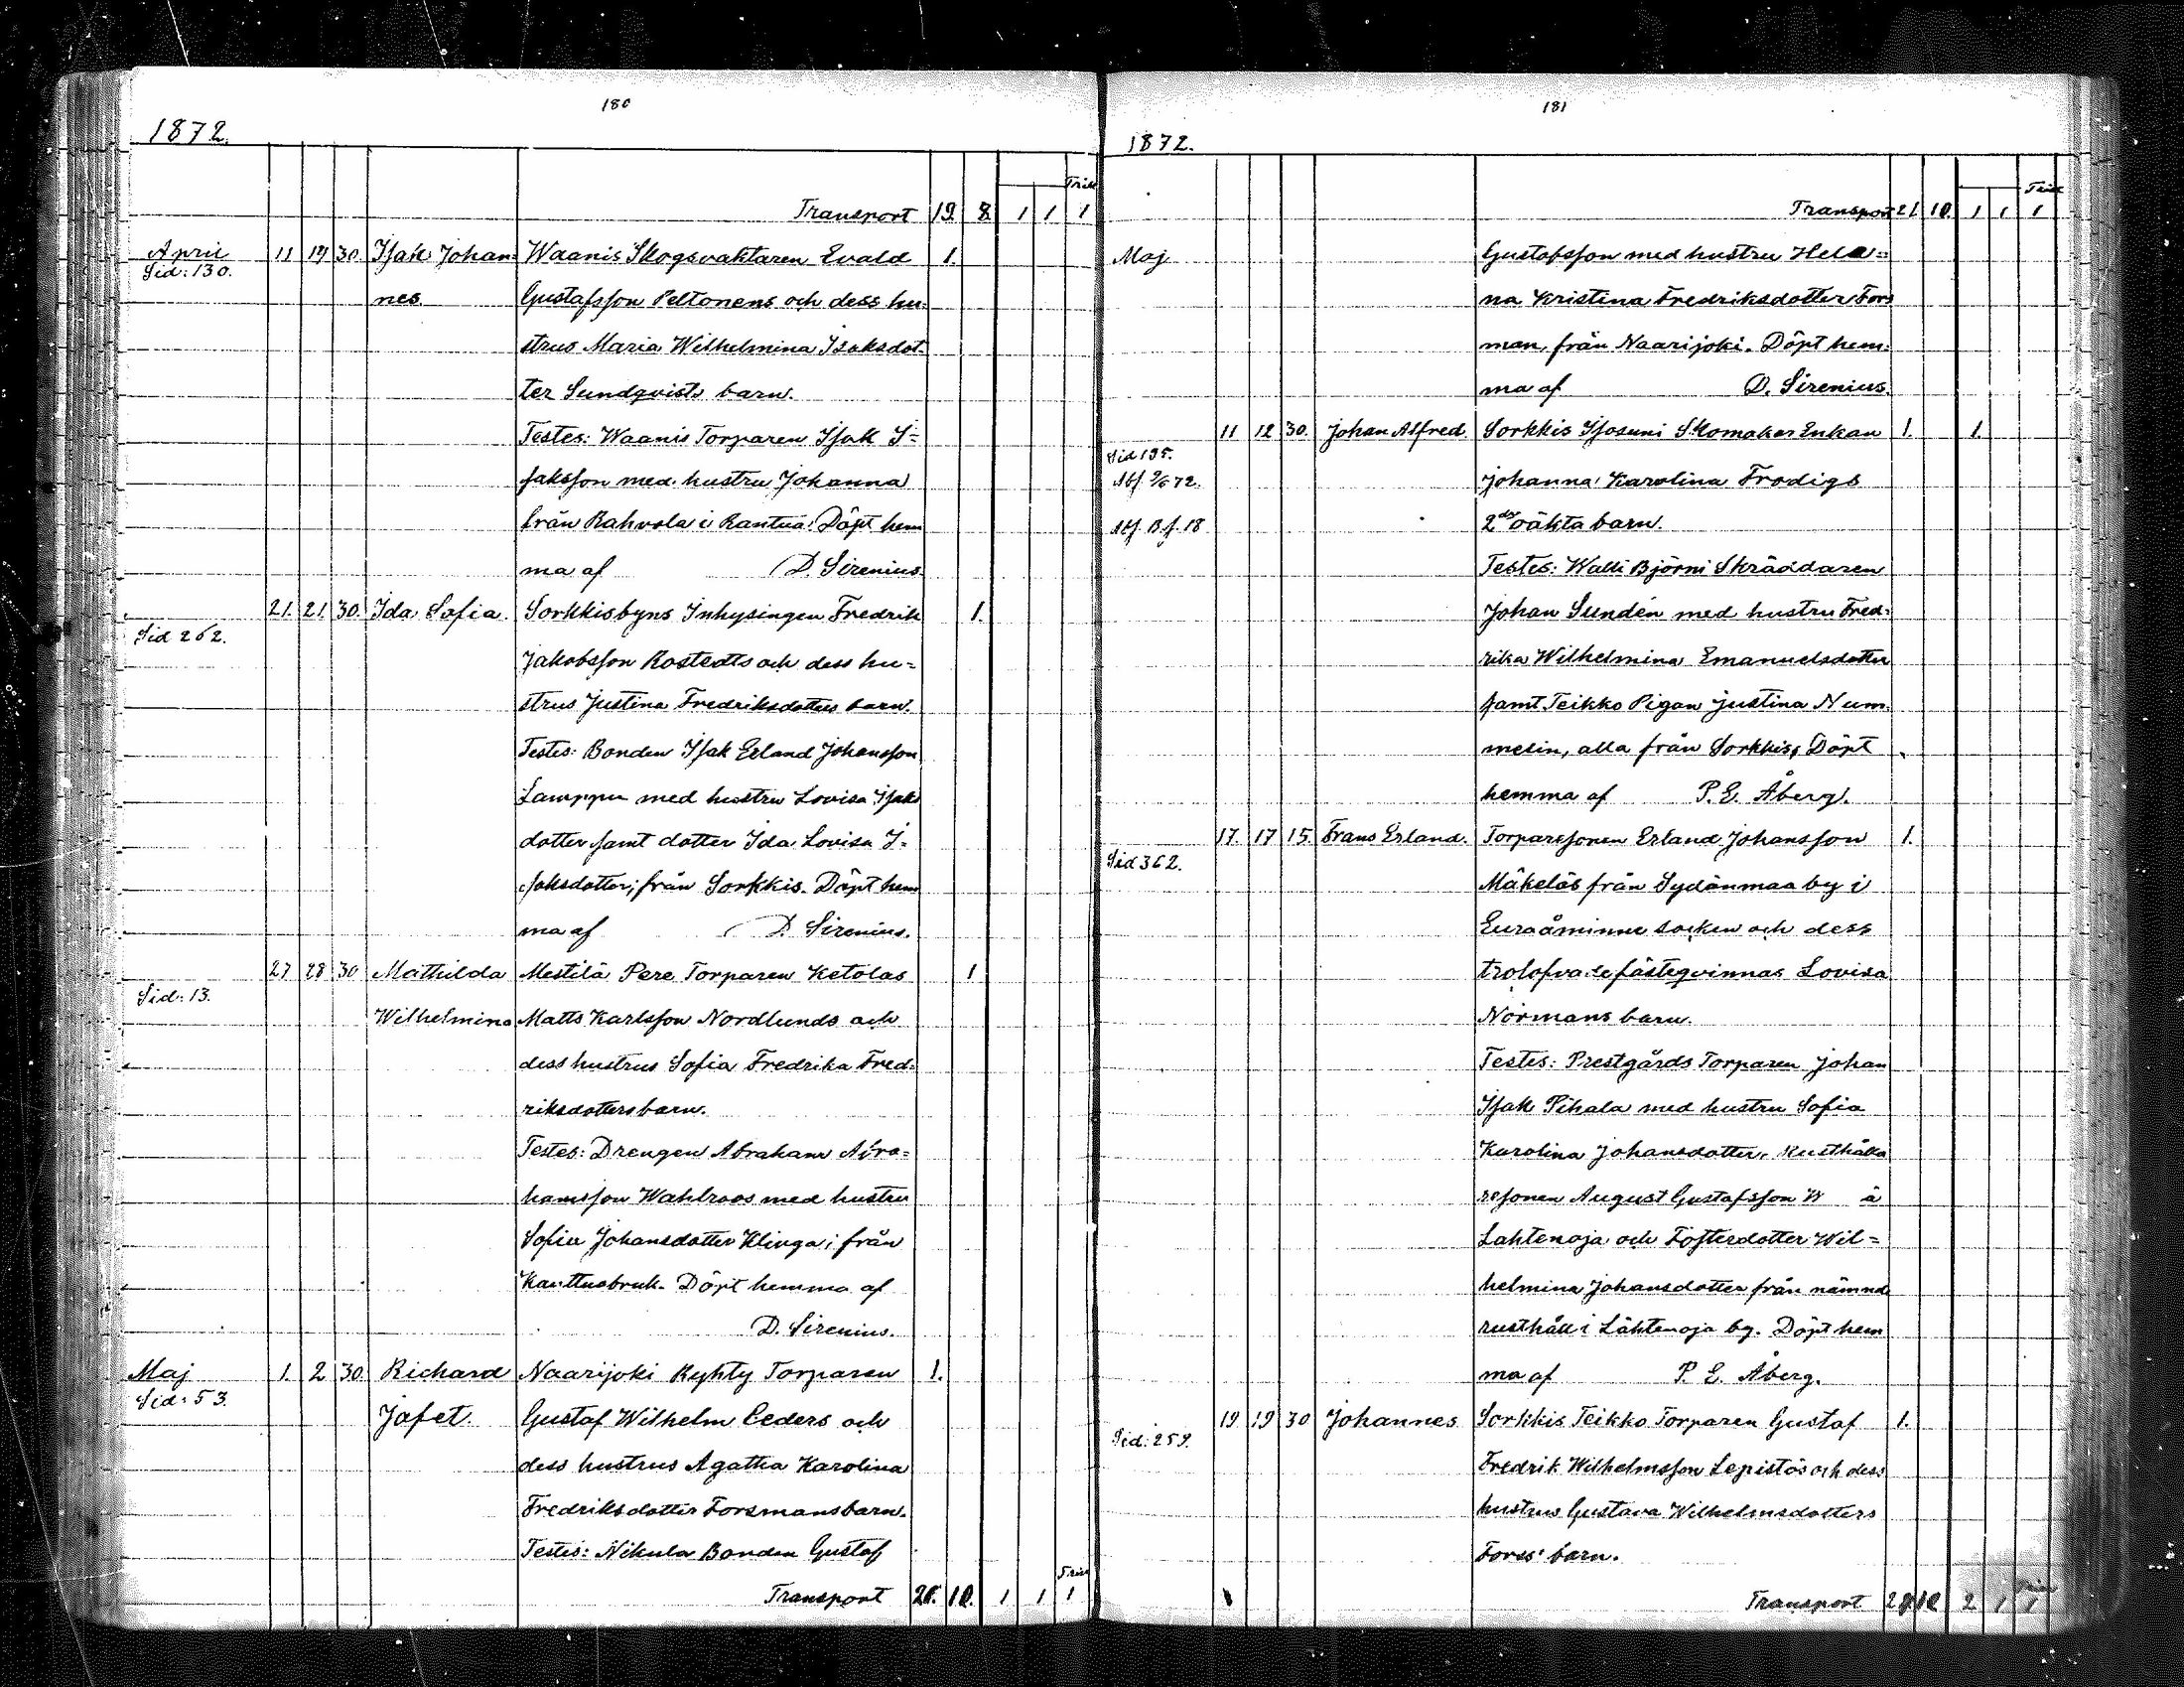 180
1872.
Transport 19. 8. 1 1 1
April 11 19 30. Isak Johan= Waanis Skogsvaktaren Evald 1.
Sid: 130.
nes. Gustafsson Peltonens och dess hu=
strus Maria Wilhelmina Isaksdot=
ter Sundqvists barn.
Testes: Waanis Torparen Isak I=
saksson med hustru Johanna
från Rahvola i Kantua. Döpt hem
ma af D. Sirenius.
21. 21. 30. Ida Sofia. Sorkkisbyns Inhysingen Fredrik 1.
Sid 262.
Jakobsson Rostedts och dess hu=
strus Justina Fredriksdotters barn.
Testes: Bonden Isak Erland Johansson
Lamppu med hustru Lovisa Isaks
dotter samt dotter Ida Lovisa I=
saksdotter; från Sorkkis. Döpt hem
ma af D. Sirenius.
27 28 30 Mathilda Mestilä Pere Torparen Ketolas 1
Sid: 13.
Wilhelmina Matts Karlsson Nordlunds och
dess hustrus Sofia Fredrika Fred=
riksdotters barn.
Testes: Drengen Abraham Abra=
hamsson Wahlroos med hustru
Sofia Johansdotter Klinga; från
Kauttuabruk. Döpt hemma af
D. Sirenius.
Maj 1. 2 30. Richard Naarijoki Ryhty Torparen 1.
Sid: 53.
Jafet. Gustaf Wilhelm Ceders och
dess hustrus Agatha Karolina
Fredriksdotter Forsmans barn.
Testes: Nikula Bonden Gustaf
Transport 10. 1 1 1
181
1872.
Transport 21. 10. 1 1 1
Maj Gustafsson med hustru Hele=
na Kristina Fredriksdotter Fors
man, från Naarijoki. Döpt hem=
ma af D. Sirenius.
11 12 30. Johan Alfred. Sorkkis Isosuni Skomakar Enkan 1. 1.
Sid 195.
Johanna Karolina Frodigs
2 dra oäkta barn.
Testes: Walli Björni Skräddaren
Johan Sundén med hustru Fred=
rika Wilhelmina Emanuelsdotter
samt Teikko Pigan Justina Num=
melin, alla från Sorkkis, Döpt
hemma af P. E. Åberg.
17. 17 15. Frans Erland. Torparesonen Erland Johansson 1.
Sid 362.
Mäkeläs från Sydänmaa by i
Euraåminne socken och dess
trolofvade fästeqvinnas Lovisa
Normans barn.
Testes: Prestgårds Torparen Johan
Isak Pihala med hustru Sofia
Karolina Johansdotter, Rusthålla
resonen August Gustafsson W å
Lahtenoja och Fosterdotter Wil=
helmina Johansdotter från nämnda
rusthåll i Lähtenoja by. Döpt hem
ma af P. E. Åberg.
19 19 30 Johannes Sorkkis Teikko Torparen Gustaf 1.
Sid: 259.
Fredrik Wilhelmsson Lepistös och dess
hustrus Gustava Wilhelmsdotters
Forss' barn.
Transport 2 1 1